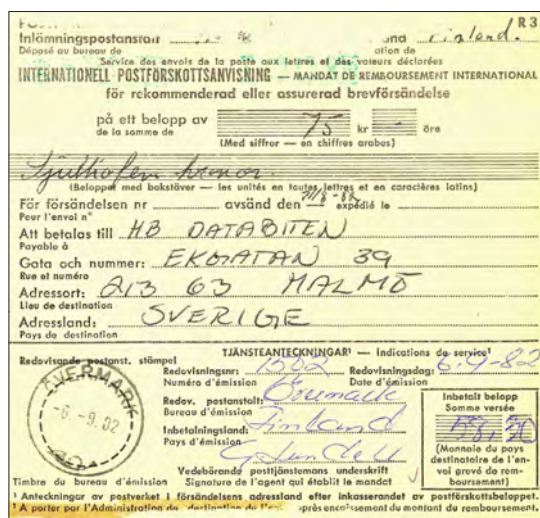 R 3
Inlämningspostanstalt Finland.
Déposé au bureau de ation de
Service des envois de la poste aux lettres et des valeurs déclarées
INTERNATIONELL POSTFÖRSKOTTSANVISNING — MANDAT DE REMBOURSEMENT INTERNATIONAL
för rekommenderad eller assurerad brevförsändelse
på ett belopp av 75 kr — öre
de la somme de
(Med siffror — en chiffres arabes)
Sjuttiofem kronor
(Beloppet med bokstäver — les unités en toutes lettres et en caractères latins)
För försändelsen nr avsänd den 31/8-82
Pour l'envoi n° expédié le
Att betalas till HB DATABITEN
Payable à
Gata och nummer: EKGATAN 39
Rue et numéro
Adressort: 213 63 MALMÖ
Lieu de destination
Adressland: SVERIGE
Pays de destination
Redovisande postanst. stämpel
TJÄNSTEANTECKNINGAR¹ — Indications de service¹
Redovisningsnr: 1502 Redovisningsdag: 6.9-82
Numéro d'émission Date d'émission
ÖVERMARK
-6.-9.82
Redov. postanstalt: Övermark
Bureau d'émission
Inbetalningsland: Finland
Pays d'émission
Inbetalt belopp
Somme versée
58,20
(Monnaie du pays destinataire de l'envoi grevé de remboursement)
Vedebörande posttjänstemans underskrift
Timbre du bureau d'émission Signature de l'agent qui établit le mandat
¹ Anteckningar av postverket i försändelsens adressland efter inkasserandet av postförskottsbeloppet.
¹ A porter par l'Administration du destination de l' après encaissement du montant du remboursement.